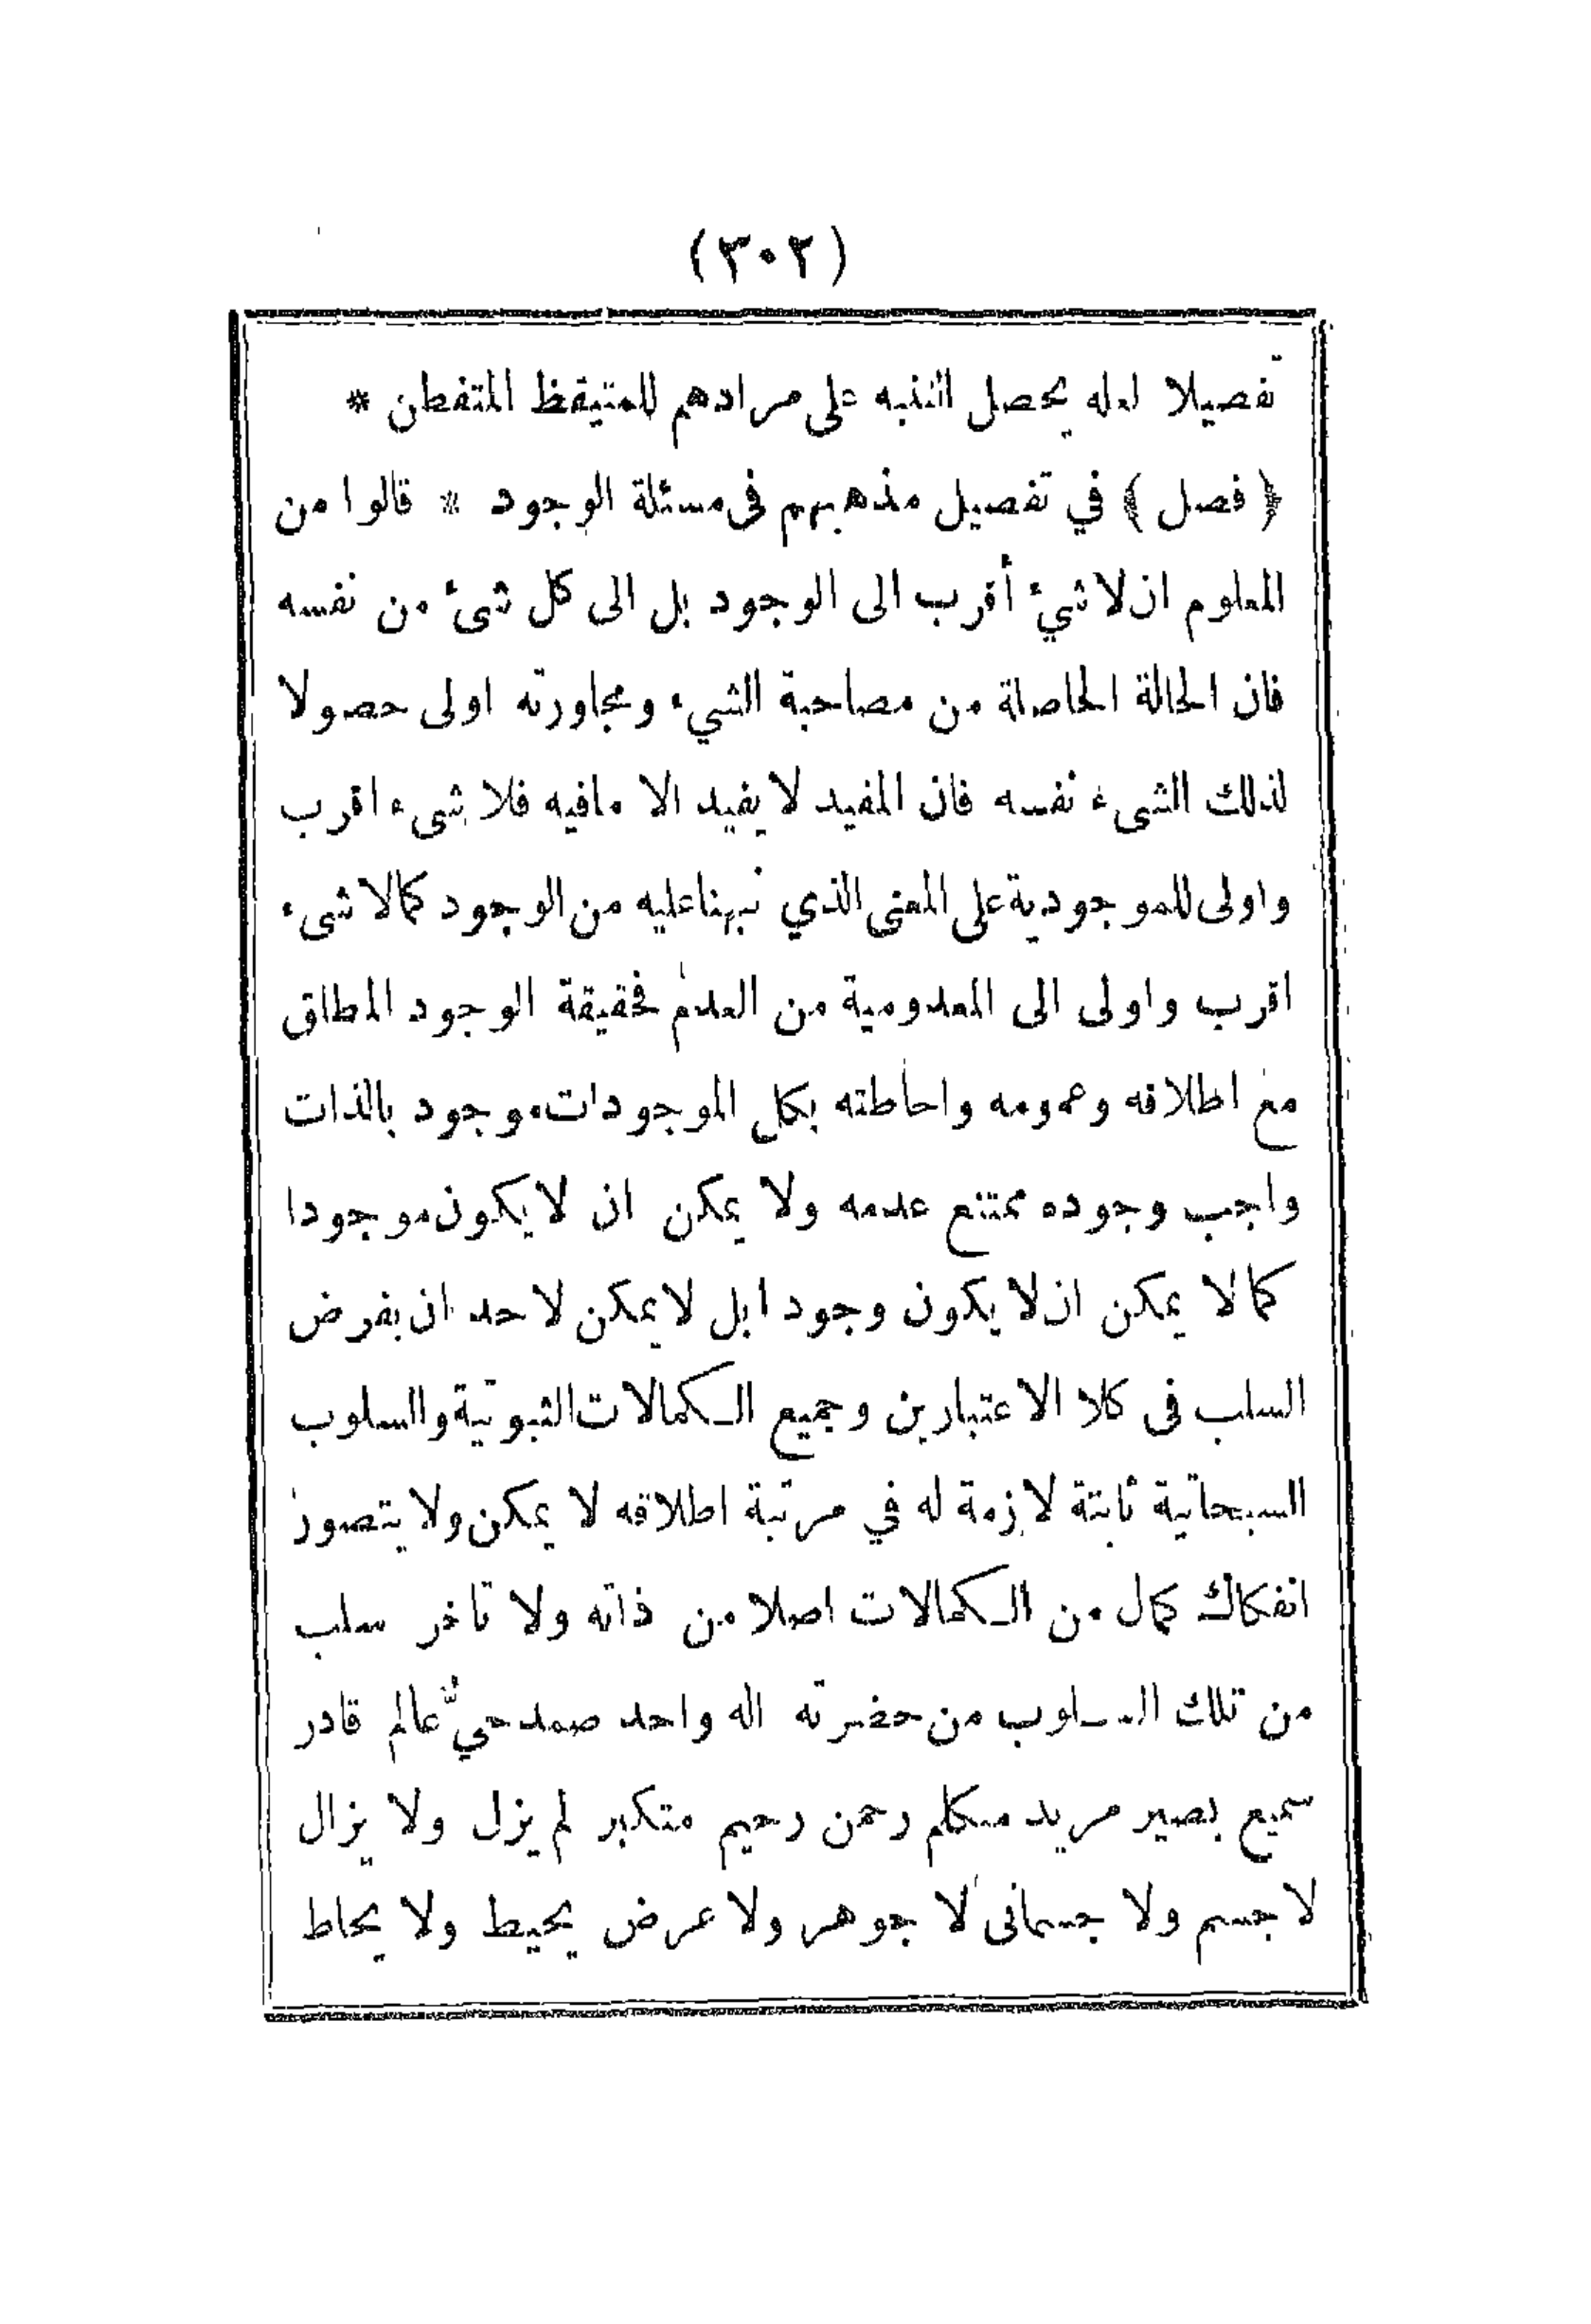 (٣٠٢)
تفصيلا لعله يحصل التنبه على مرادهم للمتيقظ المتفطن *
﴿ فصل ﴾ في تفصيل مذهبهم فى مسئلة الوجود * قالوا من
المعلوم ان لا شيء أقرب الى الوجود بل الى كل شئ من نفسه
فان الحالة الحاصلة من مصاحبة الشيء ومجاورته اولى حصولا
لذلك الشىء نفسه فان المفيد لا يفيد الا مافيه فلا شىء اقرب
واولى للموجودية على المعنى الذي نبهنا عليه من الوجود كما لا شىء
اقرب واولى الى المعدومية من العدم فحقيقة الوجود المطلق
مع اطلاقه وعمومه واحاطته بكل الموجودات موجود بالذات
واجب وجوده ممتنع عدمه ولا يمكن ان لا يكون موجودا
كما لا يمكن ان لا يكون وجودا بل لا يمكن لاحد ان يفرض
السلب فى كلا الاعتبارين وجميع الكمالات الثبوتية والسلوب
السبحانية ثابتة لازمة له في مرتبة اطلاقه لا يمكن ولا يتصور
انفكاك كمال من الكمالات اصلا من ذاته ولا تأخر سلب
من تلك السلوب من حضرته اله واحد صمد حيّ عالم قادر
سميع بصير مريد متكلم رحمن رحيم متكبر لم يزل ولا يزال
لا جسم ولا جسمانى لا جوهر ولا عرض يحيط ولا يحاط